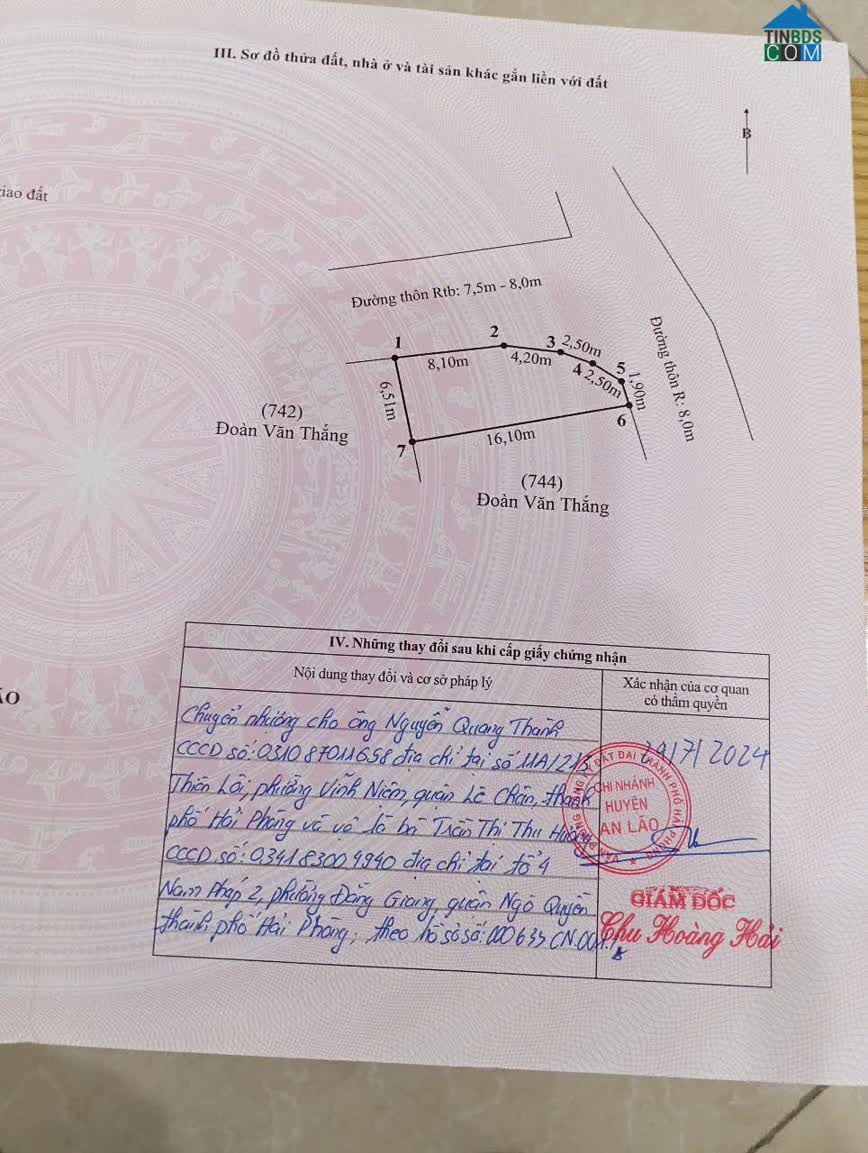 TINBDS
COM
III. Sơ đồ thửa đất, nhà ở và tài sản khác gắn liền với đất
B
giao đất
Đường thôn Rtb: 7,5m - 8,0m
Đường thôn R: 8,0m
1
2
3
4
5
6
7
8,10m
4,20m
2,50m
2,50m
1,90m
6,51m
16,10m
(742)
Đoàn Văn Thắng
(744)
Đoàn Văn Thắng
ÃO
IV. Những thay đổi sau khi cấp giấy chứng nhận
Nội dung thay đổi và cơ sở pháp lý
Xác nhận của cơ quan
có thẩm quyền
Chuyển nhượng cho ông Nguyễn Quang Thành
CCCD số: 031087011658 địa chỉ tại số 11A/213
Thiên Lôi, phường Vĩnh Niệm, quận Lê Chân, thành
phố Hải Phòng và vợ là bà Trần Thị Thu Hường
CCCD số: 034183004940 địa chỉ tại tổ 4
Nam Pháp 2, phường Đằng Giang, quận Ngô Quyền
thành phố Hải Phòng; theo hồ sơ số: 000633.CN.001.
/7/2024
CHI NHÁNH
HUYỆN
AN LÃO
GIÁM ĐỐC
Chu Hoàng Hải